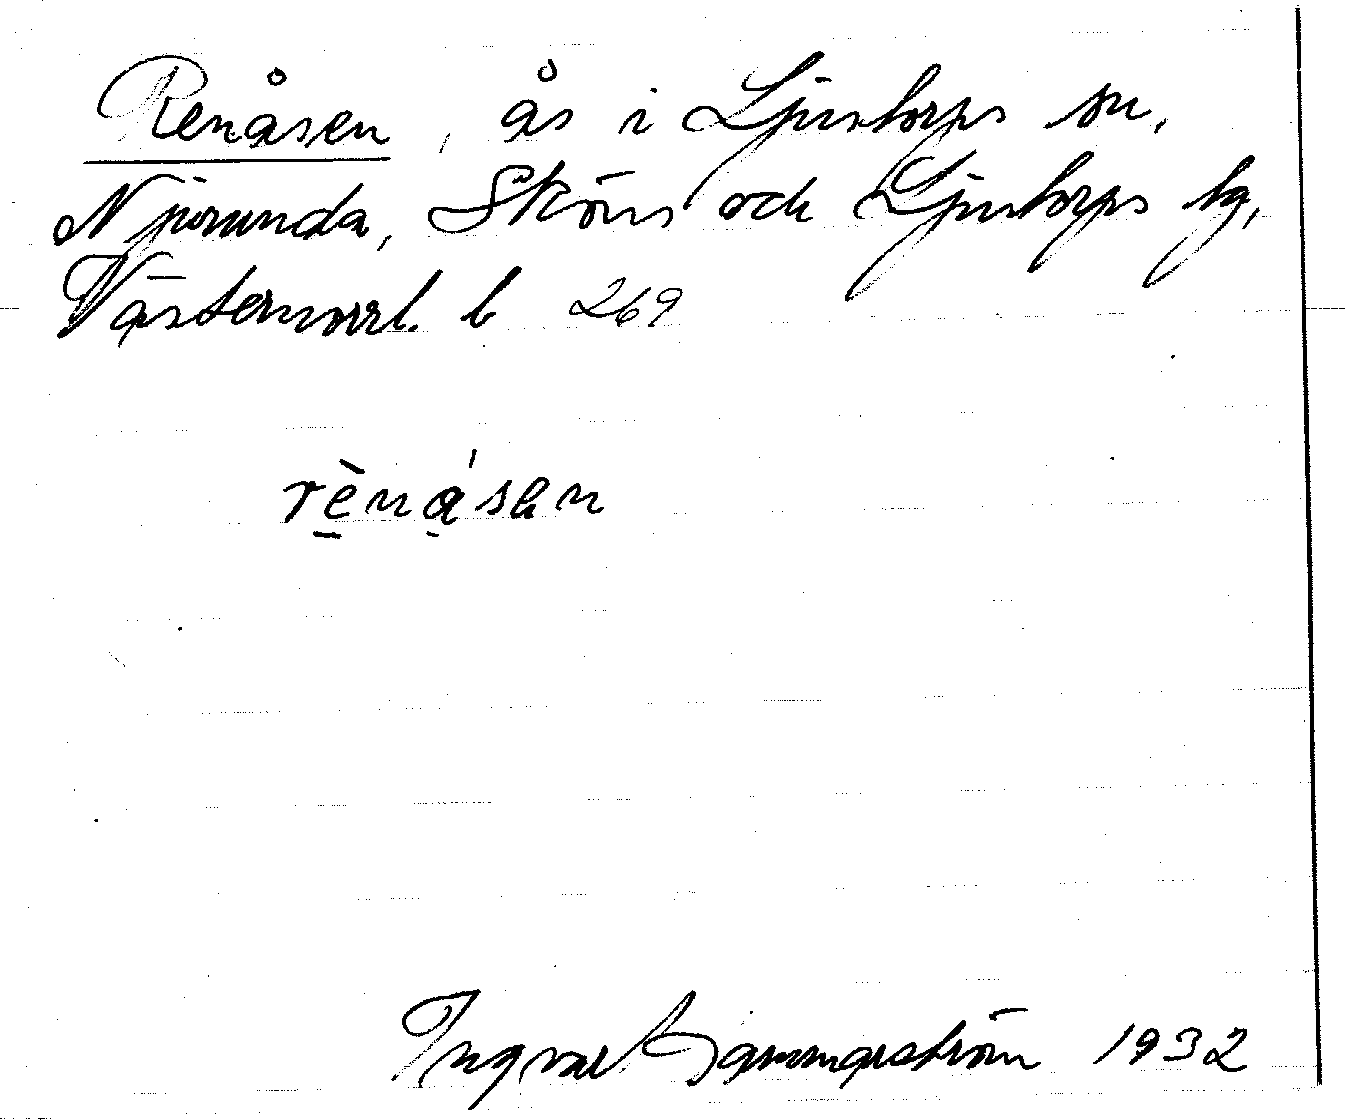 Renåsen, ås i Ljustorps sn,
Njurunda, Sköns och Ljustorps tg,
Västernorrl. l. 269
rènåsen
Ingvar Hammarström 1932